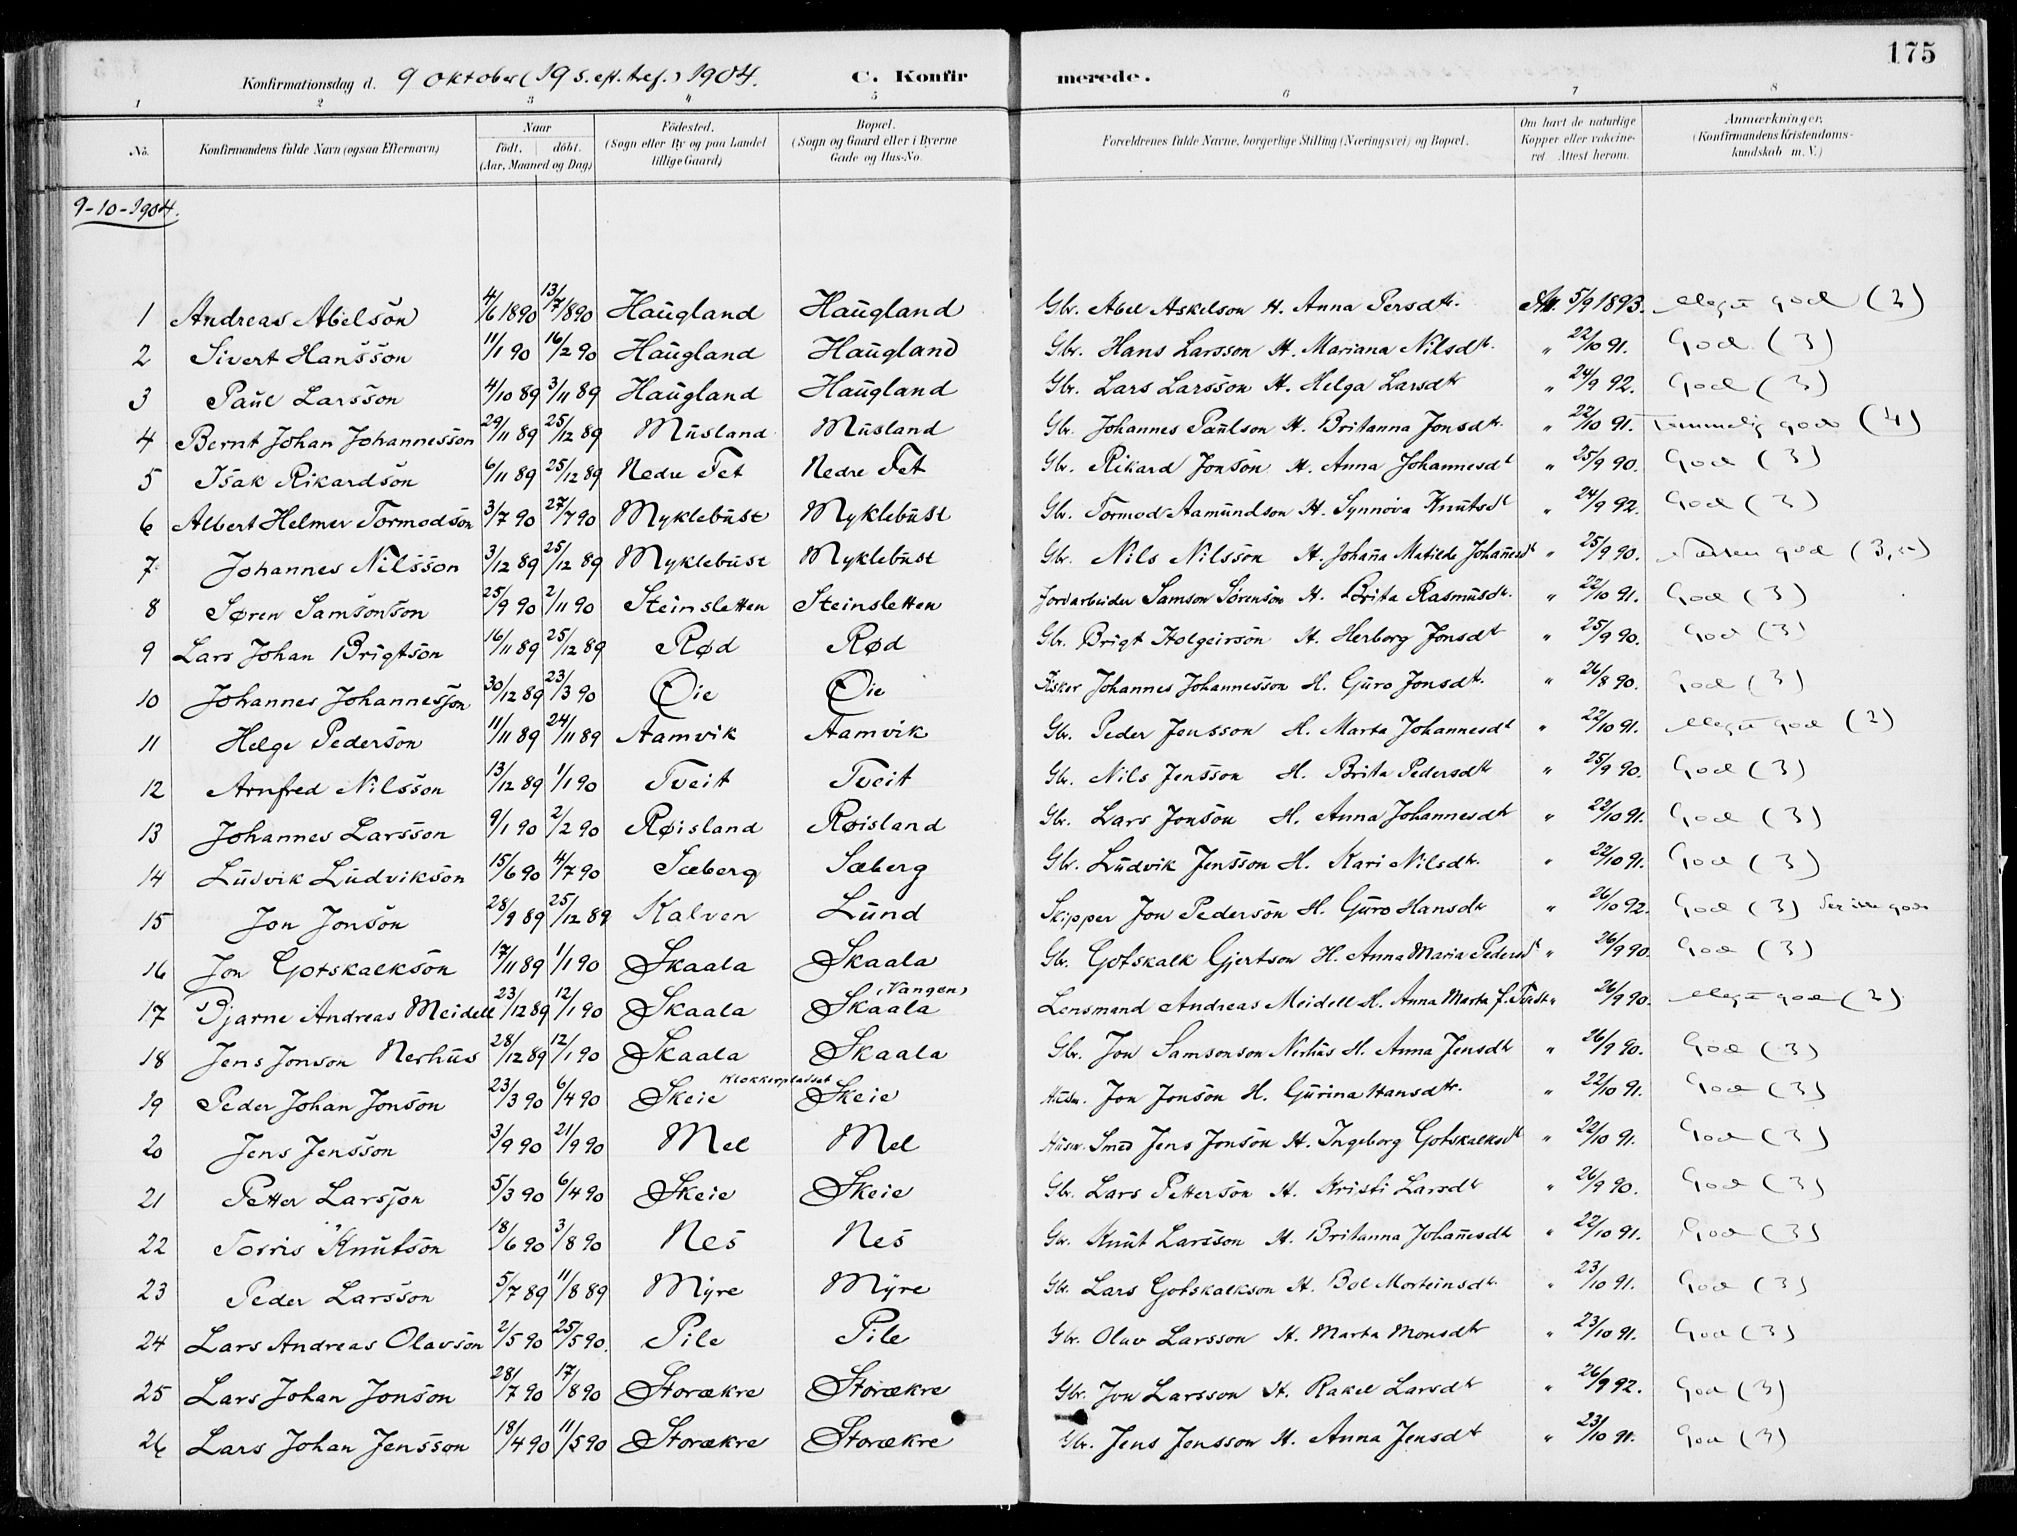 175
Konfirmationsdag d. 9 Oktober (19 s. eft. tref.) 1904. C. Konfir merede.
1 2 3 4 5 6 7 8
No. Konfirmandens fulde Navn (ogsaa Efternavn) Naar født. døbt. (Aar, Maaned og Dag) Fødested. (Sogn eller By og paa Landet tillige Gaard) Bopæl. (Sogn og Gaard eller i Byerne Gade og Hus-No. Forældrenes fulde Navne, borgerlige Stilling (Næringsvei) og Bopæl. Om havt de naturlige Kopper eller vakcineret. Attest herom. Anmærkninger. (Konfirmandens Kristendomskundskab m. V.)
9-10-1904.
1 Andreas Abelson 4/6 1890 13/7 1890 Haugland Haugland Gbr. Abel Askilson H. Anna Persdtr. Att. 5/9 1893. Meget god (2)
2 Sivert Hansson 11/1 90 16/2 90 Haugland Haugland Gbr. Hans Larsson H. Mariana Nilsdt. " 22/10 91. God (3)
3 Paul Larsson 4/10 89 3/11 89 Haugland Haugland Gbr. Lars Larsson H. Helga Larsdtr " 24/9 92. God (3)
4 Bernt Johan Johannesson 29/11 89 25/12 89 Musland Musland Gbr. Johannes Paulson H. Britanna Jonsdtr. " 22/10 91. Temmelig god (4)
5 Isak Rikardson 6/11 89 25/12 89 Nedre Fet Nedre Fet Gbr. Rikard Jonson H. Anna Johannesdt " 25/9 90. God (3)
6 Albert Helmer Tormodson 3/7 90 27/7 90 Myklebust Myklebust Gbr. Tormod Aamundson H. Synnøva Knutsdt " 24/9 92. God (3)
7 Johannes Nilsson 3/12 89 25/12 89 Myklebust Myklebust Gbr. Nils Nilsson H. Johana Matilde Johanesdt " 25/9 90. Næsten god
8 Søren Samsonson 25/9 90 2/11 90 Steinsletten Steinsletten Jordarbeider Samson Sørenson H. Brita Rasmusdt. " 22/10 91. God (3)
9 Lars Johan Brigtson 16/11 89 25/12 89 Rød Rød Gbr. Brigt Holgeirson H. Herborg Jonsdt " 25/9 90. God (3)
10 Johannes Johannesson 30/12 89 23/3 90 Øie Øie Fisker Johannes Johannesson H. Guro Jonsdtr. " 26/8 90. God (3)
11 Helge Pederson 11/11 89 24/11 89 Aamvik Aamvik Gbr. Peder Jensson H. Marta Johannesdt " 22/10 91. Meget god (2)
12 Arnfred Nilsson 13/12 89 1/1 90 Tveit Tveit Gbr. Nils Jensson H. Brita Pedersdtr " 25/9 90. God (3)
13 Johannes Larsson 9/1 90 2/2 90 Røisland Røisland Gbr. Lars Jonson H. Anna Johannesdtr " 22/10 91. God (3)
14 Ludvik Ludvikson 15/6 90 4/7 90 Sæberg Sæberg Gbr. Ludvik Jensson H. Kari Nilsdtr. " 22/10 91. God (3)
15 Jon Jonson 28/9 89 25/12 89 Kalven Lund Skipper Jon Pederson H. Guro Hansdtr " 26/10 92. God (3)
16 Jon Gotskalkson 17/11 89 1/1 90 Skaala Skaala Gbr. Gotskalk Gjertson H. Anna Maria Pedersdt " 26/9 90. God (3)
17 Bjarne Andreas Meidell 23/12 89 12/1 90 Skaala Skaala (Vangen) Lensmand Andreas Meidell H. Anna Marta f. " 26/9 90. Meget god (2)
18 Jens Jonson Nerhus 28/12 89 12/1 90 Skaala Skaala Gbr. Jon Samsonson Nerhus H. Anna Jensdtr " 26/9 90. God (3)
19 Peder Johan Jonson 23/3 90 6/4 90 Skeie Klokkerpladset Skeie Husm. Jon Jonson H. Gurina Hansdtr. " 22/10 91. God (3)
20 Jens Jensson 3/9 90 21/9 90 Mel Mel Husm. Smed Jens Jonson H. Ingeborg Gotskalksdt " 22/10 91. God (3)
21 Petter Larsson 5/3 90 6/4 90 Skeie Skeie Gbr. Lars Petterson H. Kristi Larsdtr " 26/9 90. God (3)
22 Torris Knutson 18/6 90 3/8 90 Nes Nes Gbr. Knut Larsson H. Britanna Johanesdtr " 22/10 91. God (3)
23 Peder Larsson 5/7 89 11/8 89 Myre Myre Gbr. Lars Gotskalkson H. Bol Morteinsdtr. " 23/10 91. God (3)
24 Lars Andreas Olavson 2/5 90 25/5 90. Pile Pile Gbr. Olav Larsson H. Marta Monsdtr " 23/10 91. God (3)
25 Lars Johan Jonson 28/7 90 17/8 90 Storækre Storækre Gbr. Jon Larsson H. Rakel Larsdtr " 26/9 92. God (3)
26 Lars Johan Jensson 18/4 90 11/5 90 Storækre Storækre Gbr. Jens Jensson H. Anna Jensdt " 23/10 91. God (3)